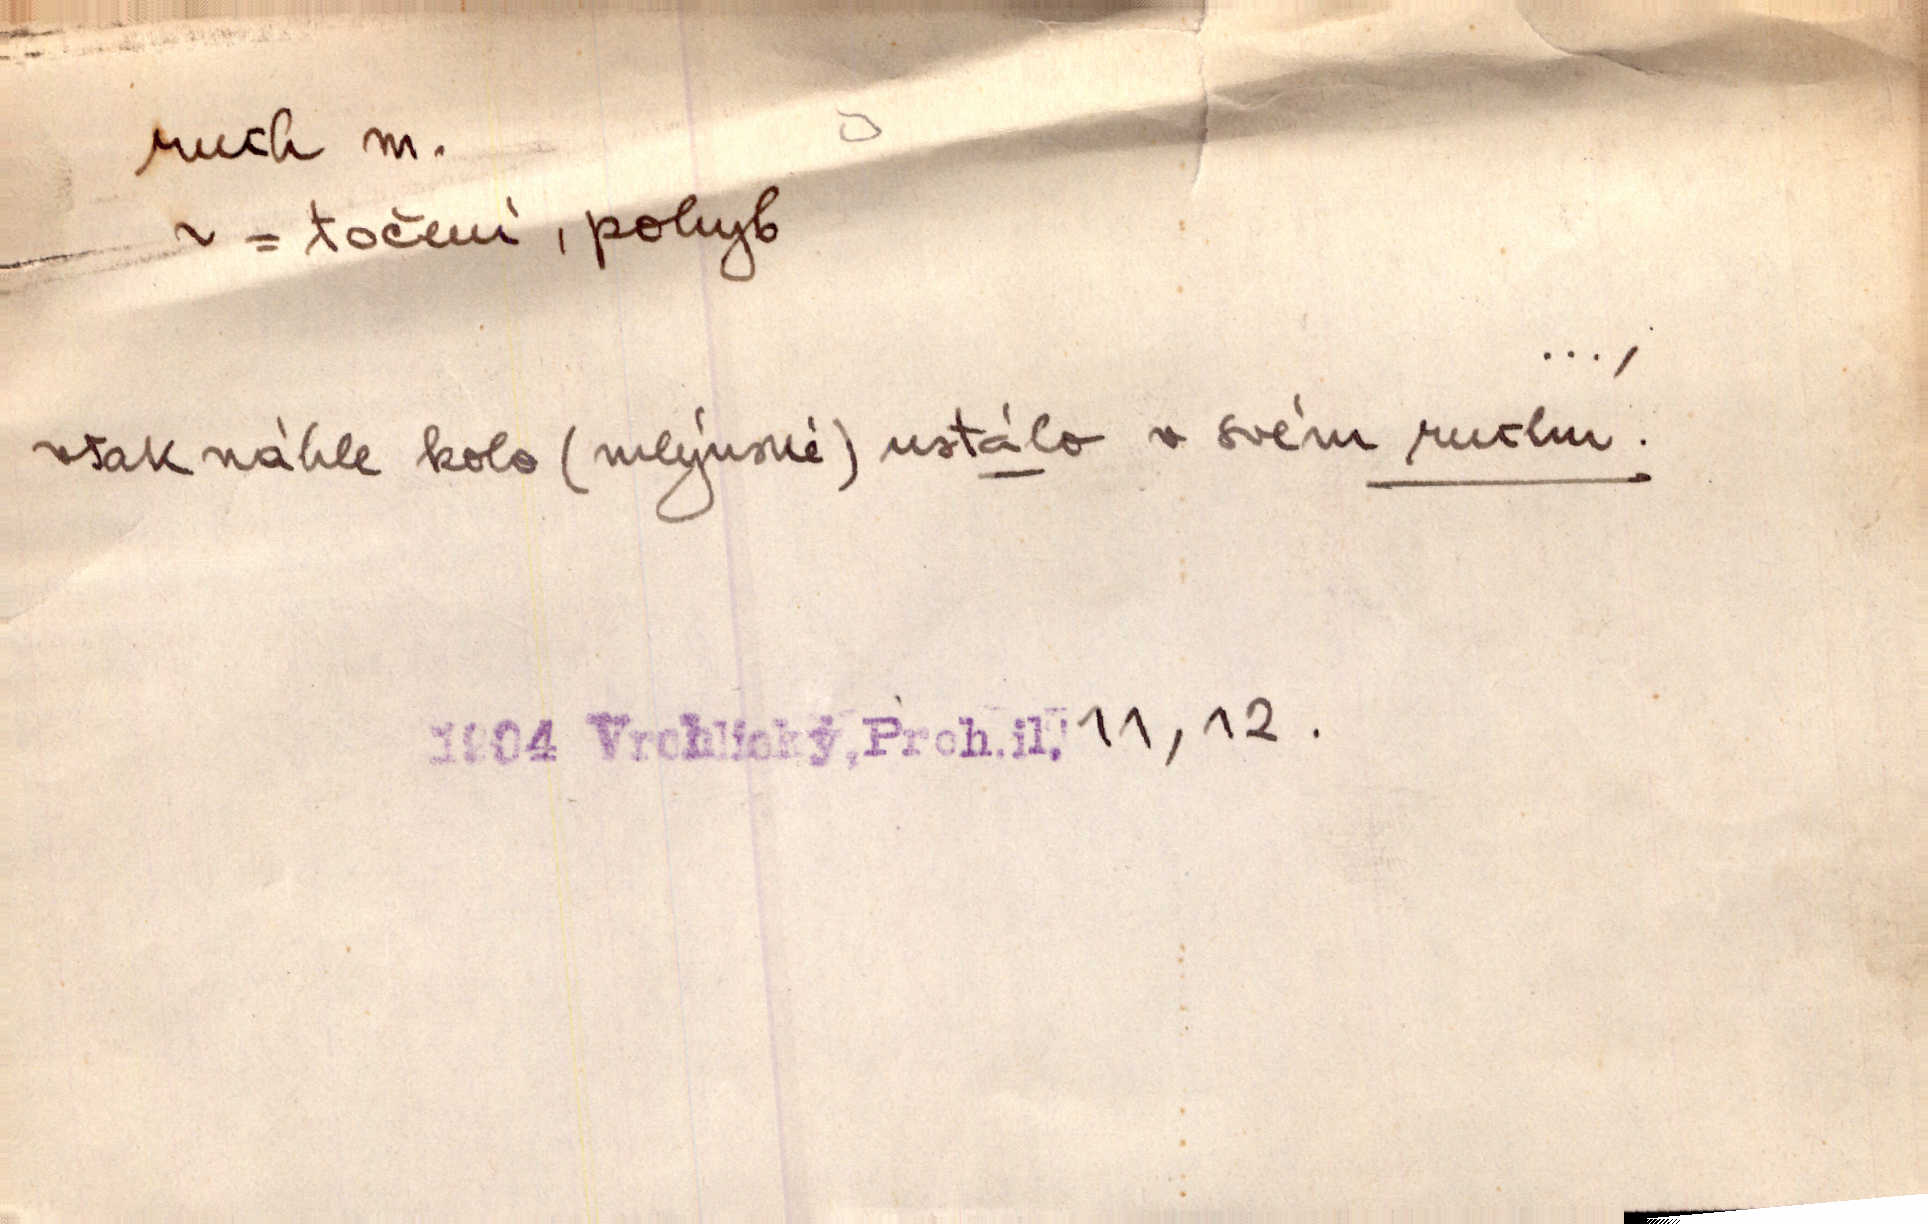 ruch m.
~ = točení, pohyb
...,
však náhle kolo (mlýnské) ustálo v svém ruchu.
1904 Vrchlický, Proh.il, 11, 12.